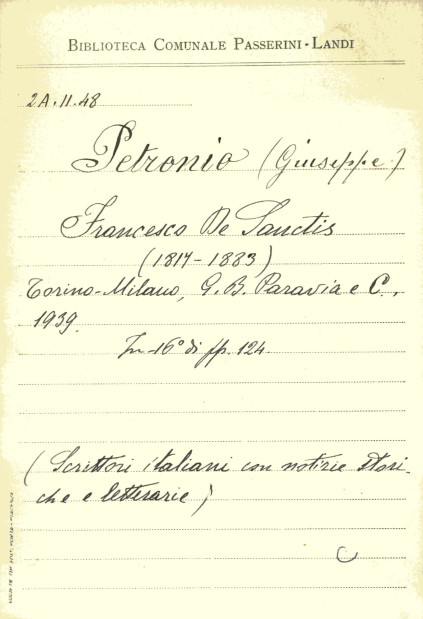 BIBLIOTECA COMUNALE PASSERINI-LANDI
2A.II.48
Petronio (Giuseppe)
Francesco De Sanctis
(1817-1883)
Torino-Milano, G. B. Paravia e C.,
1939.
In-16° di pp. 124.
(Scrittori italiani con notizie stori-
che e letterarie)
C